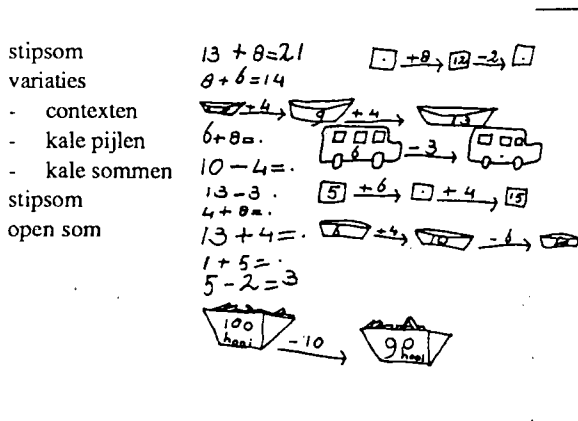 stipsom
variaties
- contexten
- kale pijlen
- kale sommen
stipsom
open som
13 + 8=21
8+6=14
+4 9 +4 13
6+8=.
10-4=.
13-3 .
4+8=.
13+4=.
1+5=.
5-2=3
. +8 12 -2 .
6 -3 .
5 +6 . +4 15
6 +4 10 -6
100 hooi -10 90 hooi